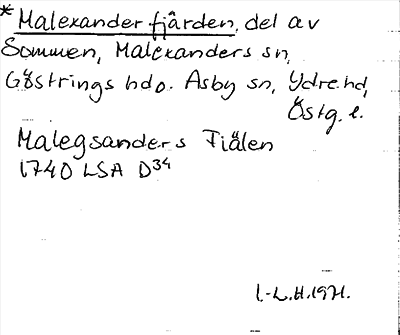 * Malexanderfjärden, del av
Sommen, Malexanders sn,
Göstrings hdo. Asby sn, Ydre hd,
Östg. l.
Malegsanders Fiälen
1740 LSA D34
I.-L.H. 1971.